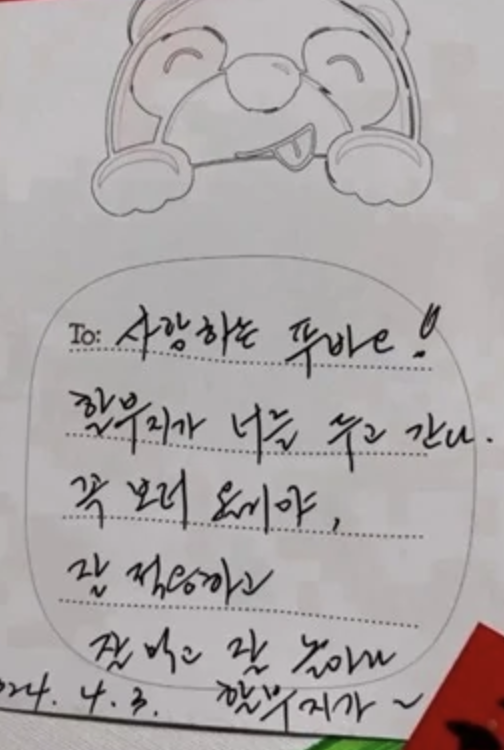 To: 사랑하는 푸바오!
할부지가 너를 두고 간다.
꼭 보러 올거야,
잘 적응하고
잘 먹고 잘 놀아라
024. 4. 3. 할부지가 ~